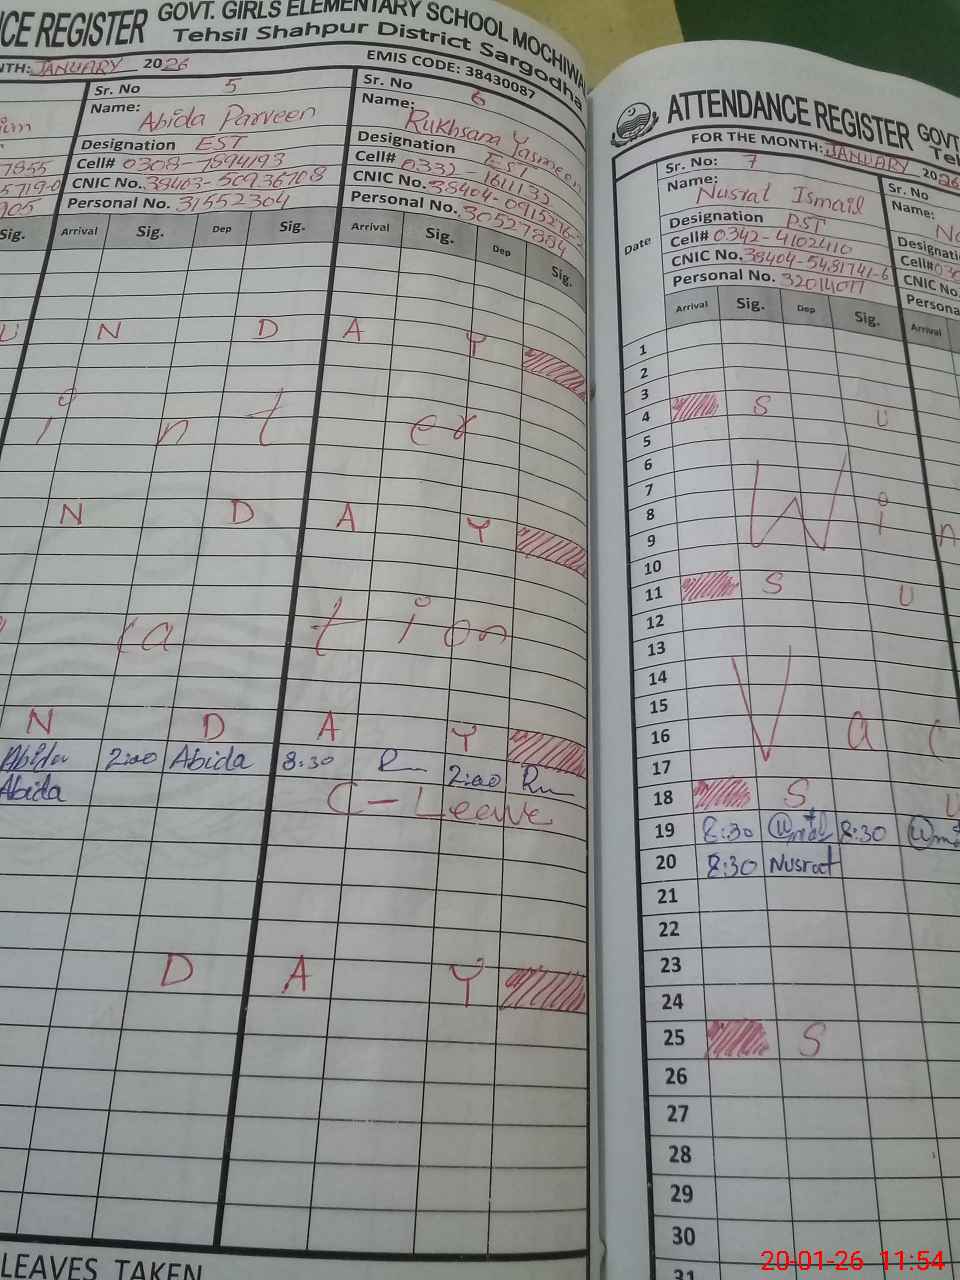 CE REGISTER GOVT. GIRLS ELEMENTARY SCHOOL MOCHIWA
Tehsil Shahpur District Sargodha
NTH: JANUARY 2026 EMIS CODE: 38430087
Sr. No 5
Name: Abida Parveen
Designation EST
Cell# 0308-7594193
Personal No. 31552304
Arrival Sig. Dep Sig.
Sr. No 6
Name: Rukhsana Yasmeen
Designation EST
Cell# 0332-1611132
CNIC No. 38404-0915216-
Personal No. 30527884
Arrival Sig. Dep Sig.
U N D A Y
i n t er
N D A Y
ra tion
N D A Y
Abida 2:00 Abida 8:30 R 2:00 R
Abida C-Leave
D A Y
LEAVES TAKEN
ATTENDANCE REGISTER GOVT
FOR THE MONTH: JANUARY 2026
Sr. No: 7
Name: Nusrat Ismail
Designation PST
Cell# 0342-4102110
CNIC No. 38404-5481741-6
Personal No. 32014077
Date Arrival Sig. Dep Sig. Arrival
Sr. No
Name:
Designati
Cell#
CNIC No.
Persona
1
2
3
4 S U
5
6
7
8 Win
9
10
11 S U
12
13
14
15
16 Vac
17
18 S U
19 8:30 8:30
20 8:30 Nusrat
21
22
23
24
25 S
26
27
28
29
30
31
20-01-26 11:54